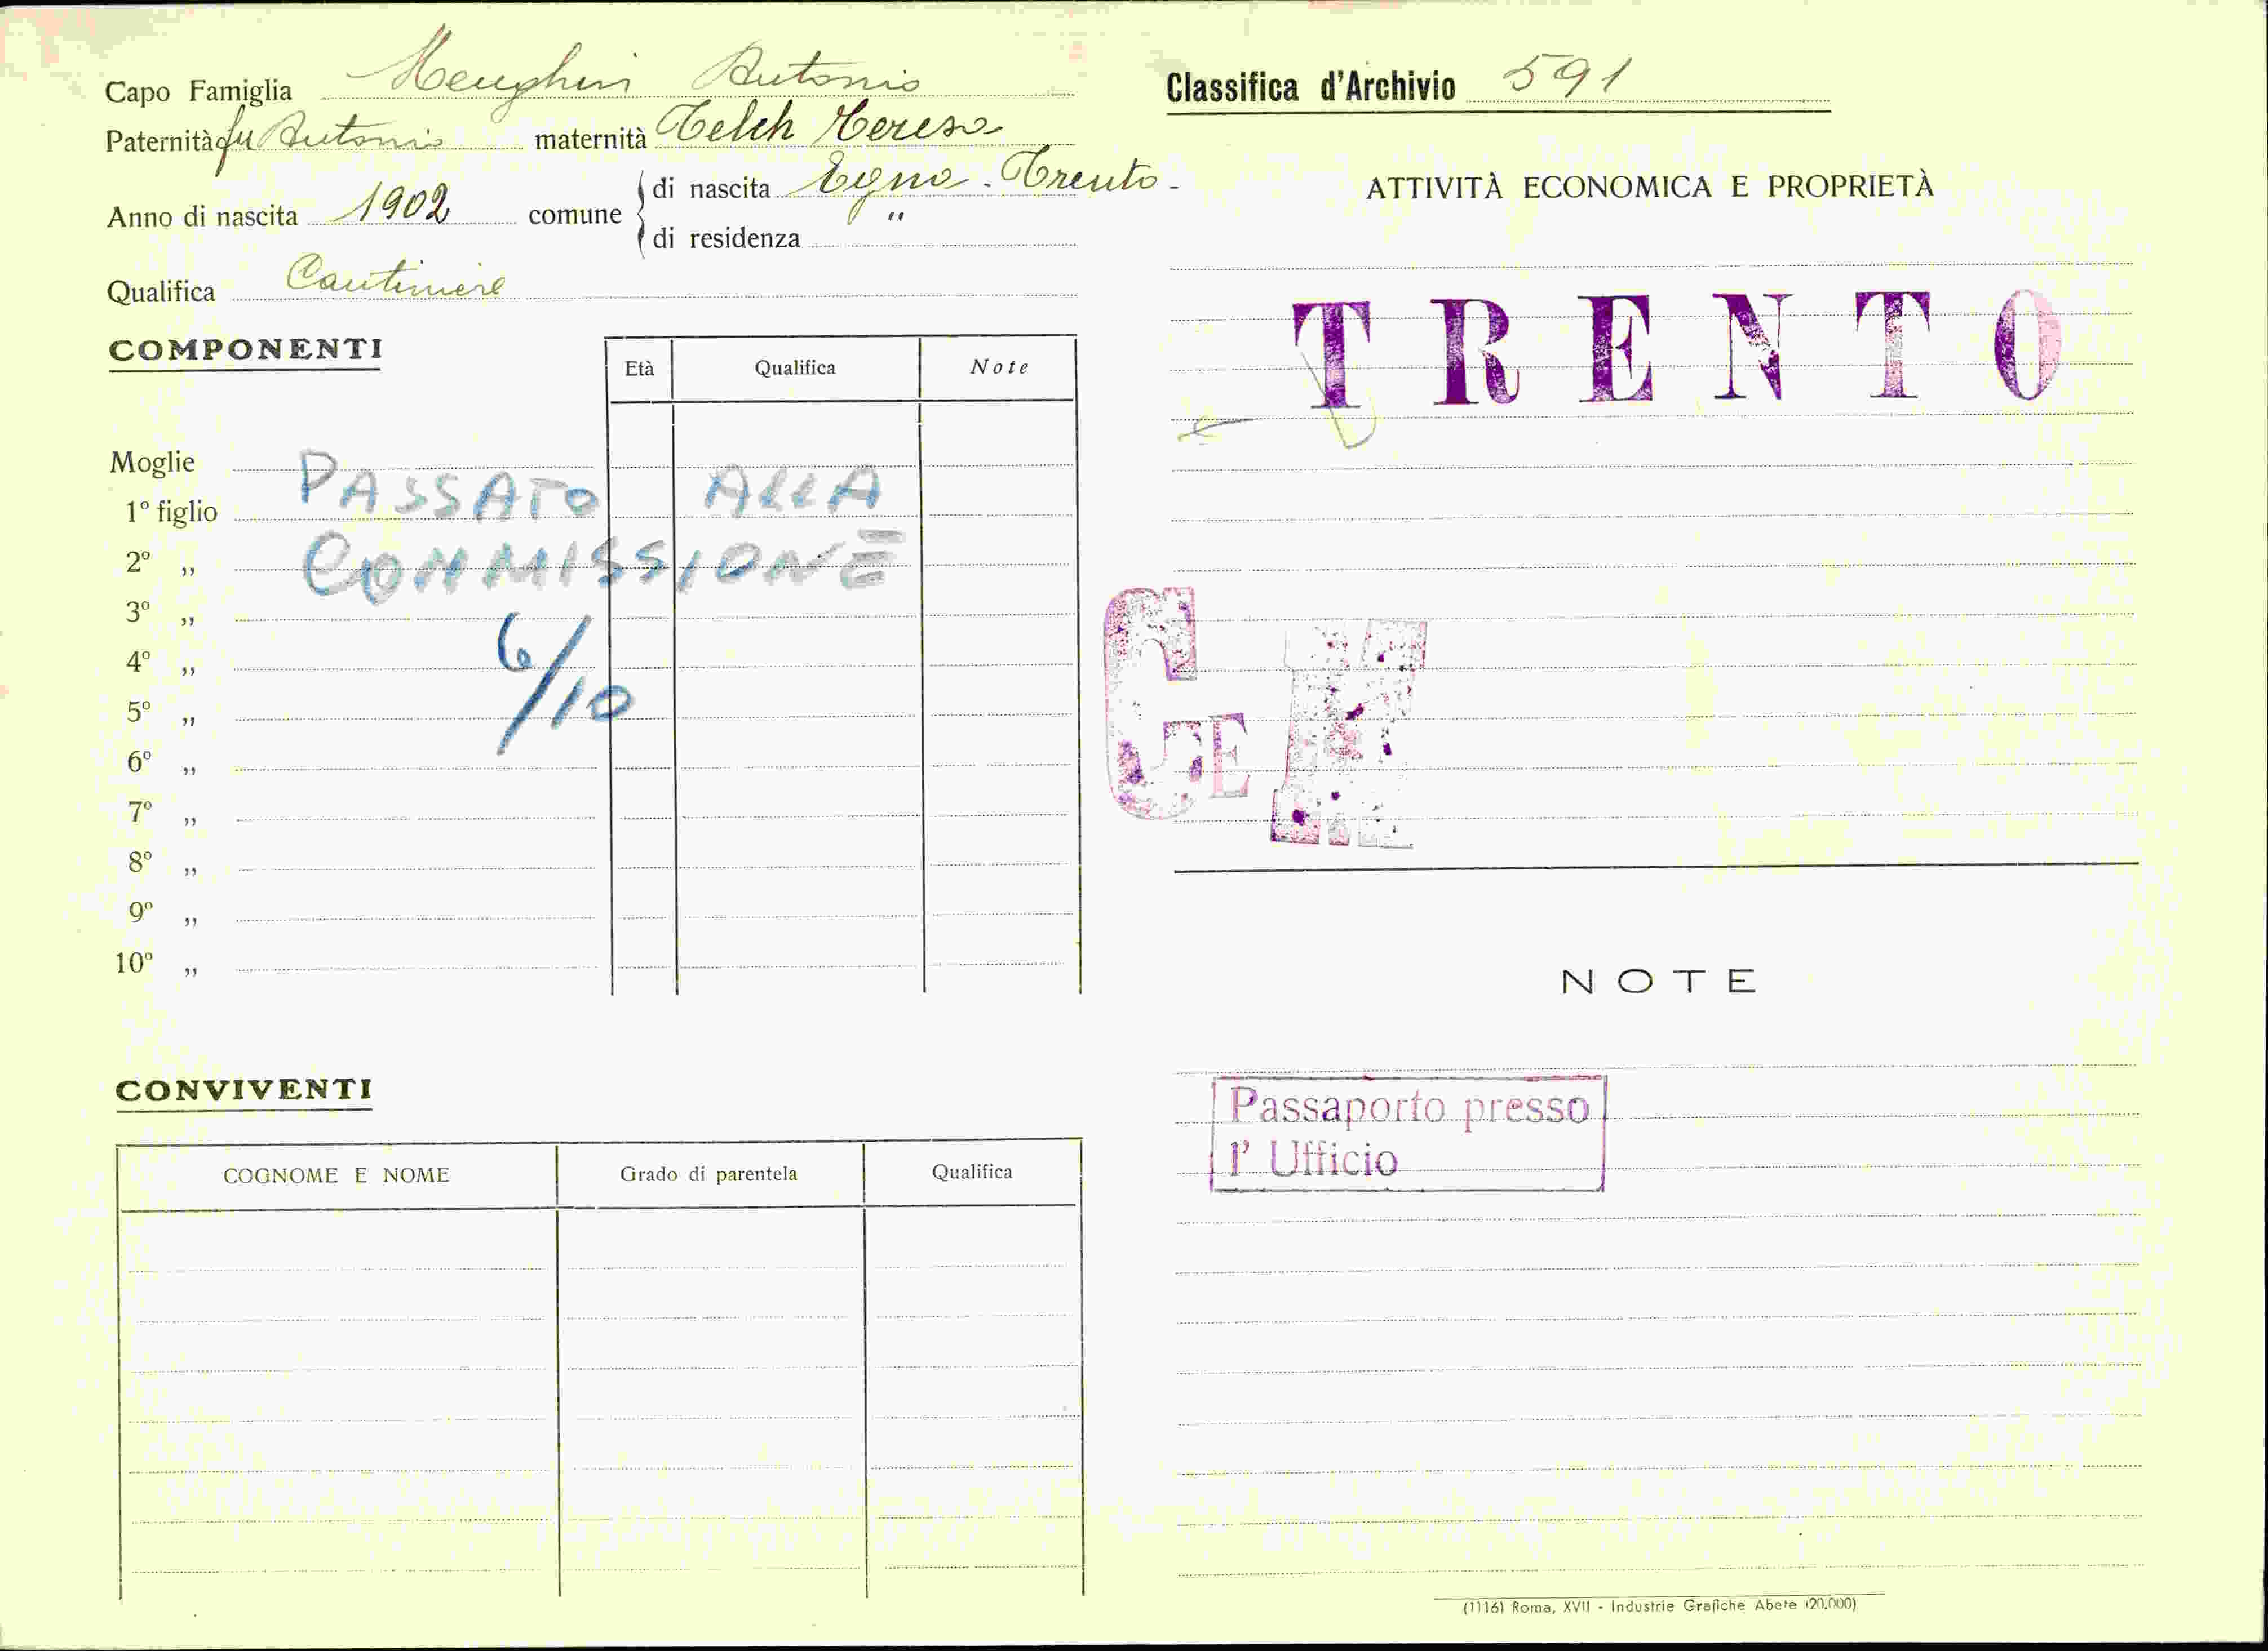 Capo Famiglia Menghin Antonio
Paternità fu Antonio maternità Telch Teresa
Anno di nascita 1902 comune
di nascita Egna - Trento -
di residenza "
Qualifica Cantiniere
COMPONENTI
Età Qualifica Note
Moglie
PASSATO ALLA
1º figlio
2º „ COMMISSIONE
3º „
4º „ 6/10
5º „
6º „
7º „
8º „
9º „
10º „
CONVIVENTI
COGNOME E NOME Grado di parentela Qualifica
Classifica d'Archivio 591
ATTIVITÀ ECONOMICA E PROPRIETÀ
TRENTO
NOTE
Passaporto presso
l' Ufficio
(1116) Roma, XVII - Industrie Grafiche Abete (20.000)